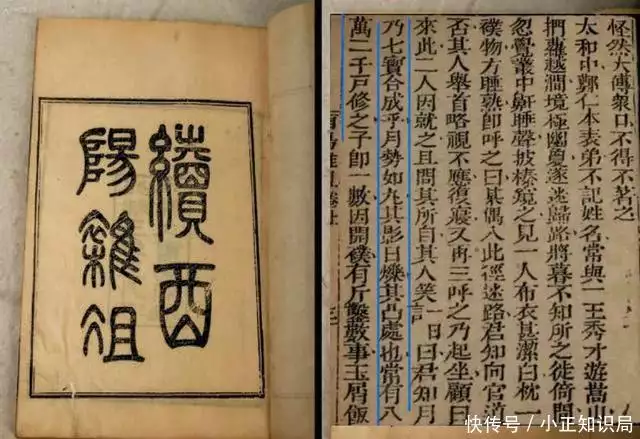 續酉
陽雜俎
怪然大傳衆口不得不著之
太和中鄭仁本表弟不記姓名常與一王秀才遊嵩山
捫蘿越澗境極幽夐遂迷歸路將暮不知所之徙倚間
忽覺叢中鼾睡聲披榛窺之見一人布衣甚潔白枕一
襆物方睡熟卽呼之曰某偶入此徑迷路君知向官道
否其人舉首略視不應復寢又再三呼之乃起坐顧曰
來此二人因就之且問其所自其人笑 曰君知月
乃七寶合成乎月勢如丸其影日爍其凸處也常有八
萬二千戸修之子卽一數因開襆有斤鑿數事玉屑飯
快传号/小正知识局